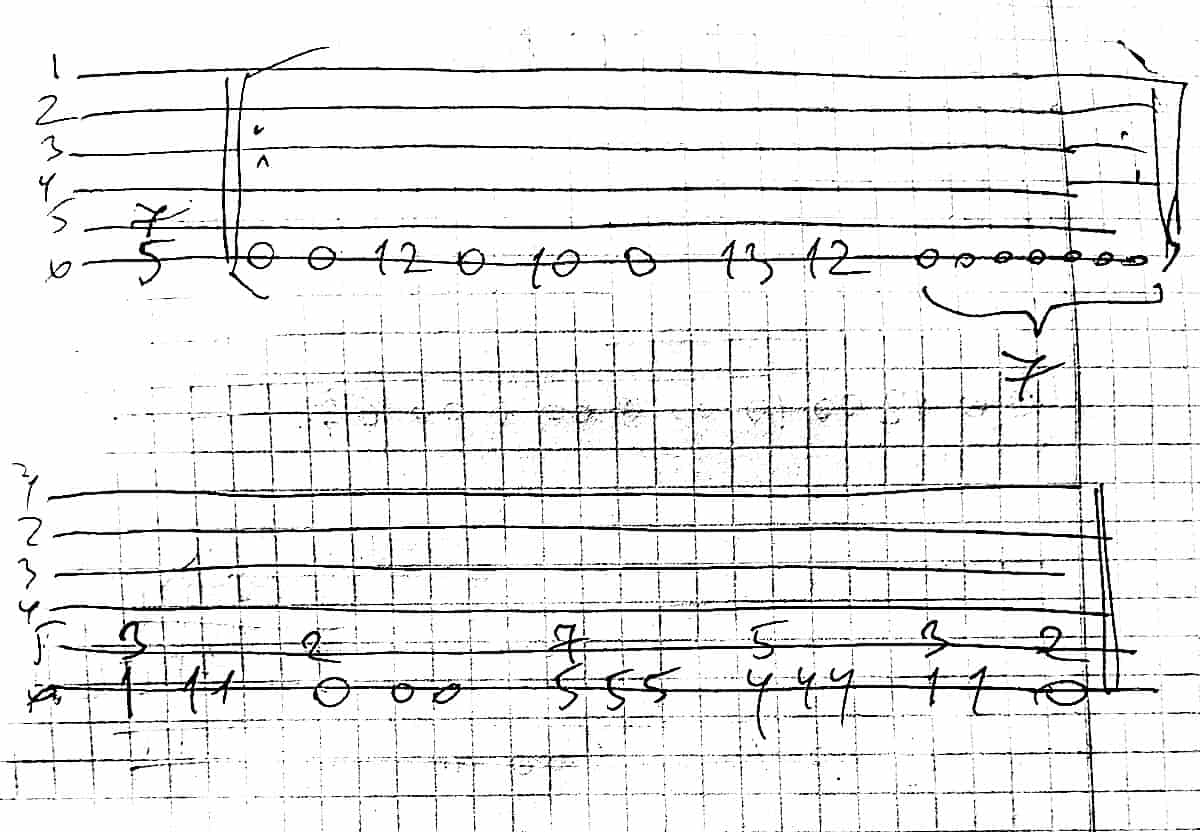 1
2
3
4
5 7
6 5 0 0 12 0 10 0 13 12 0 0 0 0 0 0 0
7
1
2
3
4
5 3 2 7 5 3 2
6 1 1 1 0 0 0 5 5 5 4 4 4 1 1 0